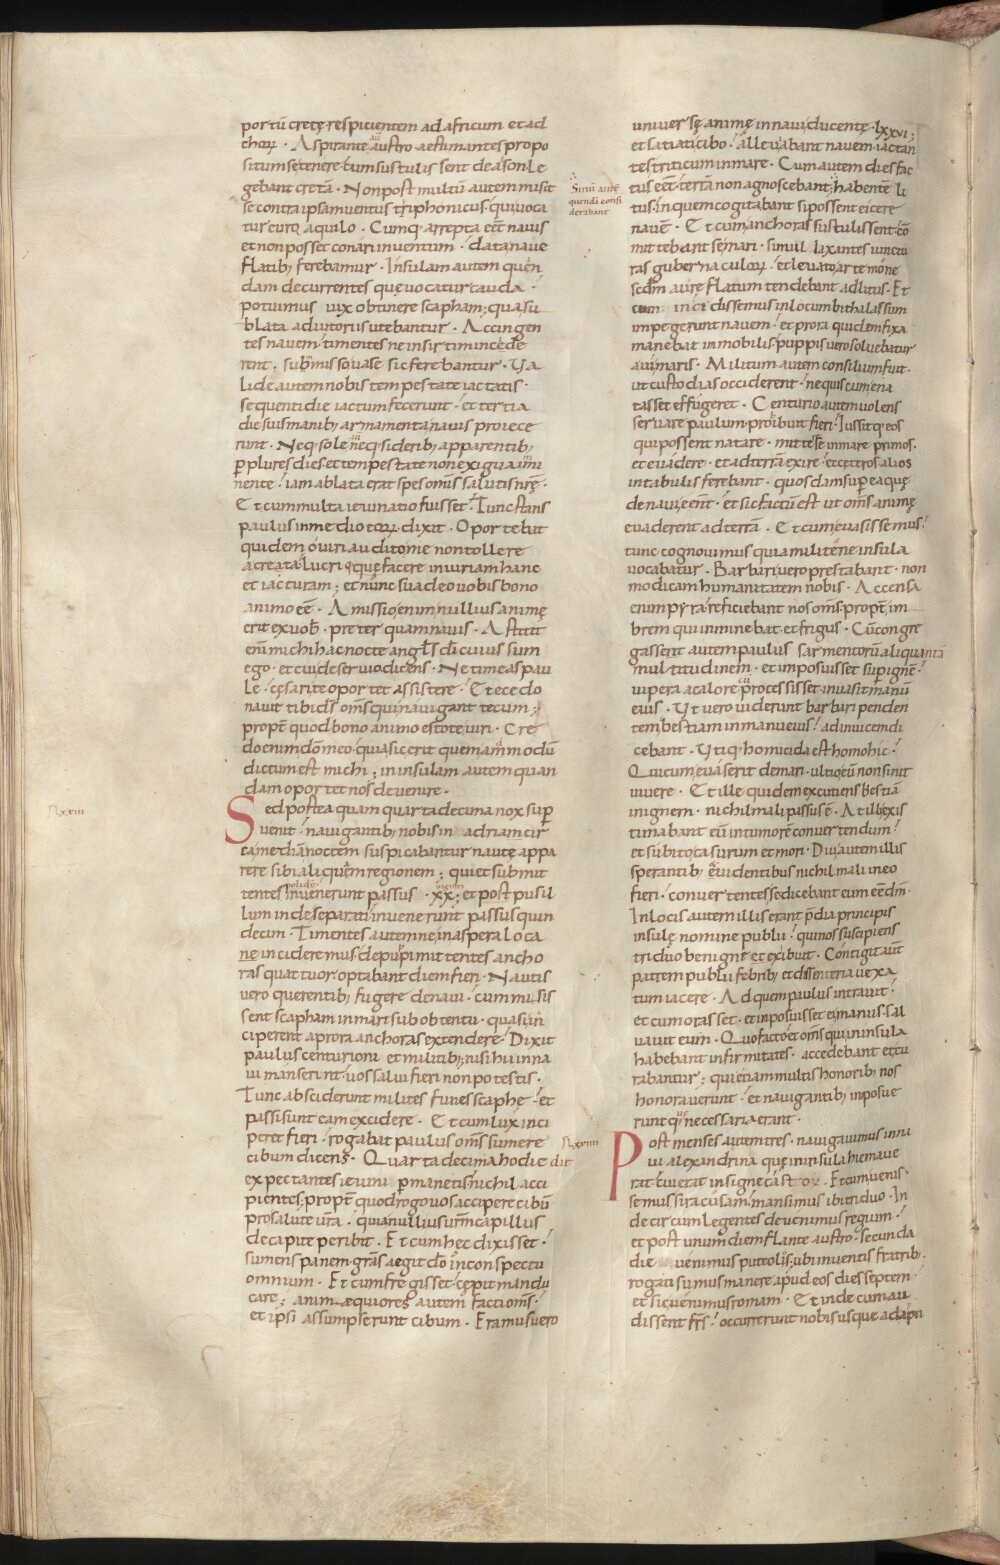 portū cretę respicientem ad africum et ad
choꝝ · Aspirante aũ austro aestimantes propo
situm se tenere · cum sustulissent de asson le
gebant cretā · Non post multū autem misit
se contra ipsam ventus typhonicus · qui voca
tur euro aquilo · Cumq; arrepta eēt navis
et non posset conari in ventum · data nave
flatib; ferebamur · Insulam autem quen
dam decurrentes quę vocatur cauda ·
potuimus vix obtinere scapham; qua su
blata adiutoriis utebantur · Accingen
tes navem · timentes ne in sirtim incęde
rent · submisso vase sic ferebantur · Va
lide autem nobis tempestate iactatis ·
sequenti die iactum fecerunt · et tertia
die suis manib; armamenta navis proiece
runt · Neq; sole aũ neq; siderib; apparentib;
p plures dies et tempestate non exigua immi
nente · iam ablata erat spes omīs salutis nrę ·
Et cum multa ieiunatio fuisset · Tunc stans
paulus in medio eoꝝ dixit · Oportebat
quidem o viri audito me non tollere
a creta · lucriq; facere iniuriam hanc
et iacturam; et nunc suadeo vobis bono
animo eē · Amissio enim nullius animę
erit ex vob · preter quam navis · Astitit
eni michi hac nocte angls di cuius sum
ego · et cui deservio dicens · Ne timeas pau
le · cęsari te oportet assistere · Et ecce do
navit tibi ds oms qui navigant tecum ;
propt quod bono animo estote viri · Cre
do enim dō meo · quia sic erit quemammodū
dictum est michi ; in insulam autem quan
dam oportet nos devenire ·
Sed postea quam quarta decima nox sup
venit · navigantib; nobis in adria · cir
ca mediā noctem suspicabantur nautę appa
rere sibi aliquam regionem ; qui et submit
tentes bolidē invenerunt passus · xx · ; et post pusil
lum inde separati invenerunt passus quin
decim · Timentes autem ne in aspera loca
ne incideremus · de puppi mittentes ancho
ras quattuor · optabant diem fieri · Nautis
vero querentib; fugere de navi · cum misis
sent scapham in mari sub obtentu · quasi in
ciperent a prora anchoras extendere · Dixit
paulus centurioni et militib; · nisi hii in na
vi manserint · vos salvi fieri non potestis ·
Tunc absciderunt milites funes scaphę · et
passi sunt eam excidere · Et cum lux inci
peret fieri · rogabat paulus oms sumere
cibum dicens · Quarta decima hodie die
expectantes ieiuni pmanetis nichil acci
pientes; propt quod rogo vos accipere cibū
pro salute vra · quia nullius vrm capillus
de capite peribit · Et cum hec dixisset ·
sumens panem · gras aegit dō in conspectu
omnium · Et cum fregisset · cępit mandu
care ; animęquiores autem facti oms ·
et ipsi assumpserunt cibum · Eramus vero
Sinū aute
quendā consi
derabant
universę animę in navi ducentę · lxxvi ;
et satiati cibo · alleviabant navem · iactan
tes triticum in mare · Cum autem dies fac
tus eēt · terrā non agnoscebant; habente li
tus · in quem cogitabant si possent eicere
navē · Et cum anchoras sustulissent · cō
mittebant se mari · simul laxantes iunctu
ras gubernaculoꝝ · et levato artemone
scdm aurę flatum tendebant ad litus · Et
cum incidissemus in locum bithalassum
impegerunt navem · et prora quidem fixa
manebat immobilis · puppis vero solvebatur
a vi maris · Militum autem consilium fuit ·
ut custodias occiderent · ne quis cum ena
tasset effugeret · Centurio autem volens
servare paulum · prohibuit fieri · Iussitq; eos
qui possent natare · mittere se in mare primos ·
et evadere · et ad terrā exire · et ceteros alios
in tabulis ferebant · quosdam sup ea quę
de navi eēnt · et sic factū est ut oms animę
evaderent ad terrā · Et cum evasissemus ·
tunc cognovimus quia militene insula
vocabatur · Barbari vero prestabant · non
modicam humanitatem nobis · Accensa
enim pyra · reficiebant nos oms · propt im
brem qui inminebat · et frigus · Cū congre
gasset autem paulus sarmentorū aliquantā
multitudinem · et imposuisset sup ignē ·
vipera a calore cū processisset · invasit manū
eius · Ut vero viderunt barbari penden
tem bestiam in manu eius · ad invicem di
cebant · Utiq; homicida est homo hic ·
Qui cum evaserit de mari · ultio eū non sinit
vivere · Et ille quidem excutiens bestiā
in ignem · nichil mali passus ē · At illi exis
timabant eū in tumorē convertendum ·
et subito casurum et mori · Diu autem illis
sperantib; et videntibus nichil mali in eo
fieri · convertentes se dicebant eum eē dm ·
In locis autem illis erant pdia principis
insulę nomine publii · qui nos suscipiens
triduo benigne exibuit · Contigit aut
patrem publii febrib; et dissenteria vexa
tum iacere · Ad quem paulus intravit ·
et cum orasset · et inposuisset ei manus · sal
vavit eum · Quo facto et oms qui in insula
habebant infirmitates · accedebant et cu
rabantur ; qui etiam multis honorib; nos
honoraverunt · et navigantib; inposue
runt quę necessaria erant ·
Post menses autem tres · navigavimus in na
vi alexandrina quę in insula hiemave
rat · cui erat insigne castoꝝ · Et cum venis
semus siracusam · mansimus ibi triduo · In
de circumlegentes devenimus regium ·
et post unum diem flante austro · secunda
die venimus puteolis; ubi inventis fratrib;
rogati sumus manere apud eos dies septem ·
et sic venimus romam · Et inde cum au
dissent frs · occurrerunt nobis usque ad appii